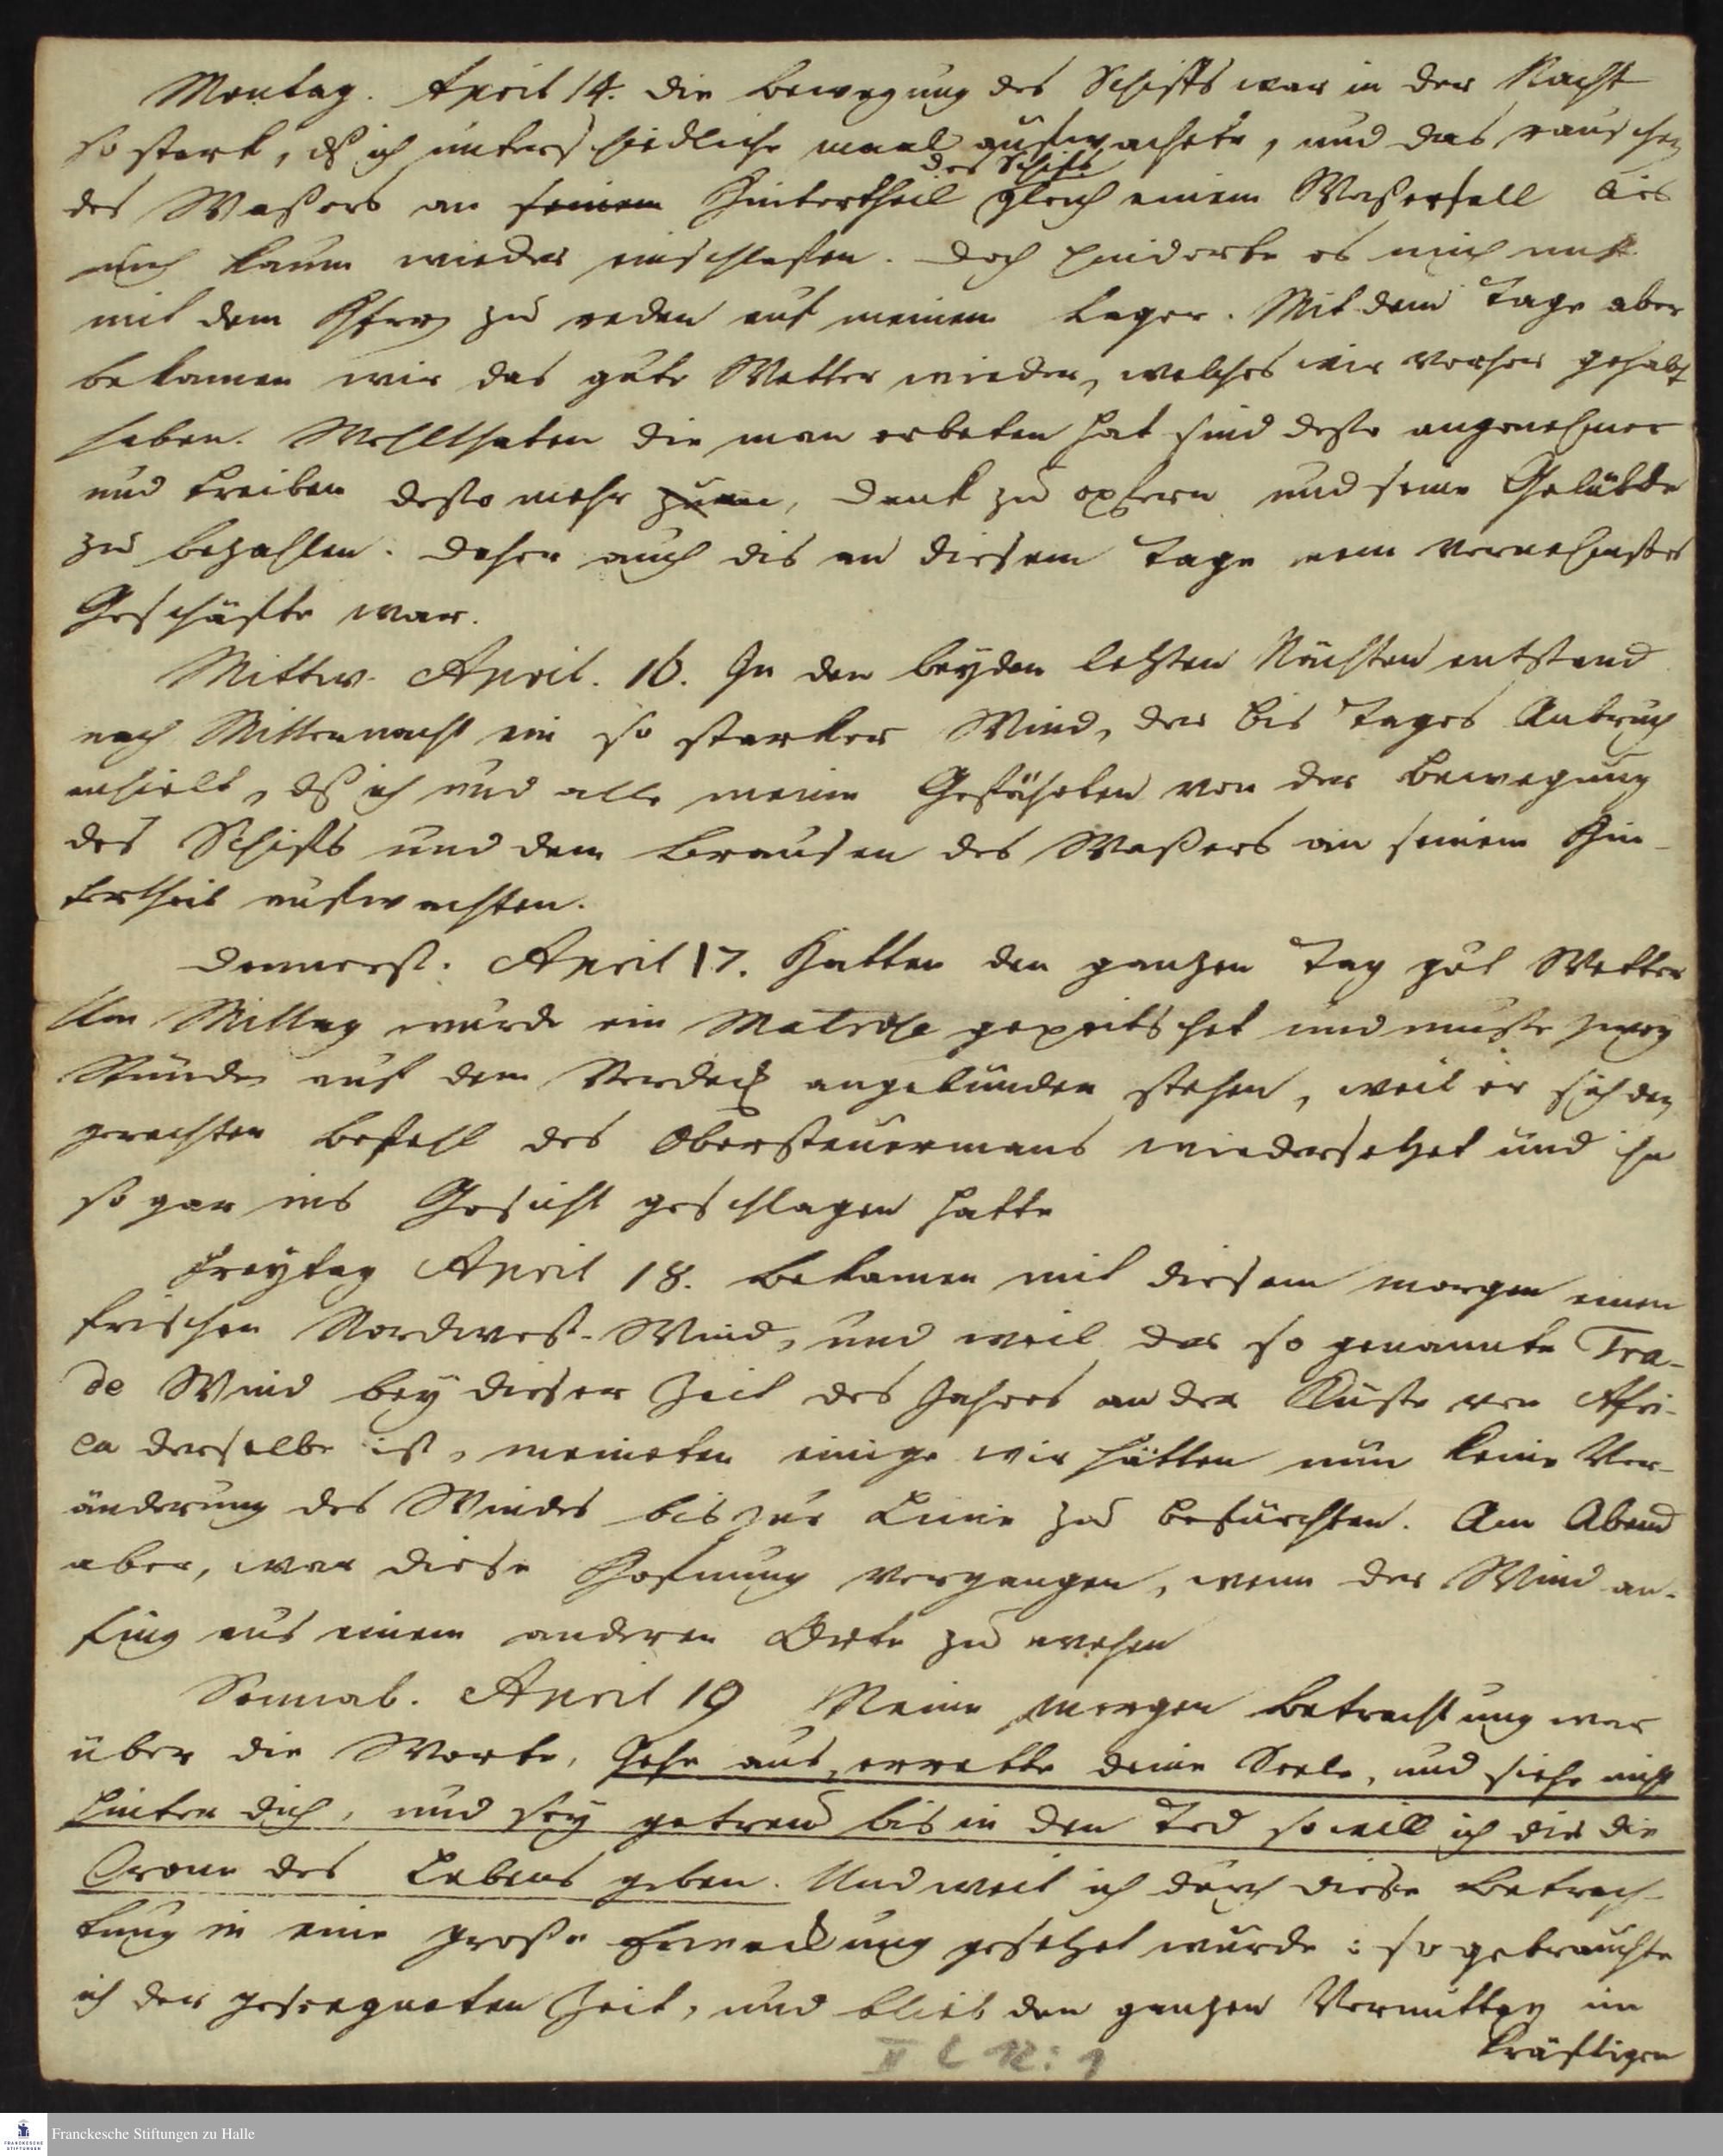 Montag. April 14. die bewegung des Schiffs war in der Nacht
so stark, dß ich unterschiedliche maal aufwachete, und das rauschen
des Schiffs
des Waßers an seinem Hintertheil gleich einem Waßerfall lies
mich kaum wieder einschlafen. Doch hinderte es mich nicht
mit dem Herrn zu reden auf meinem Lager. Mit dem Tage aber
bekamen wir das gute Wetter wieder, welches wir vorher gehabt
haben. Wohlthaten die man erbeten hat sind desto angenehmer
und treiben desto mehr, Dank zu opfern und seine Gelübde
zu bezahlen. Daher auch dis an diesem Tage mein vornehmstes
Geschäfte war.
Mittw. April. 16. In den beyden letzten Nächten entstand
nach Mitternacht ein so starker Wind, der bis Tages Anbruch
anhielt, dß ich und alle meine Gefährten von der bewegung
des Schiffs und dem brausen des Waßers an seinem Hin-
tertheil aufwachten.
Donnerst. April 17. Hatten den ganzen Tag gut Wetter
Um Mittag wurde ein Matrose gepeitschet und muste zwey
Stunden auf dem Verdeck angebunden stehen, weil er sich den
gerechten befehl des Obersteuermans wiedersetzet und ihn
so gar ins Gesicht geschlagen hatte
Freytag April 18. bekamen mit diesem morgen einen
frischen Nordwest-Wind, und weil der so genannte Tra-
de Wind bey dieser Zeit des Jahres an der Küste von Afri-
ca derselbe ist, meineten einige wir hätten nun keine Ver-
änderung des Windes bis zur Linie zu befürchten. Am Abend
aber, war diese Hofnung vergangen, wenn der Wind an-
fing aus einem anderen Orte zu wehen
Sonnab. April 19 Meine morgen betrachtung war
über die Worte, Gehe aus, errette deine Seele, und siehe nicht
hinter dich, und sey getreu bis in den Tod so will ich dir die
Crone des Lebens geben. Und weil ich durch diese betrach-
tung in eine große Erweckung gesetzet wurde : so gebrauchte
ich der gesegneten Zeit, und blieb den ganzen Vormittag im
kräftigen
II C 12: 1
Franckesche Stiftungen zu Halle